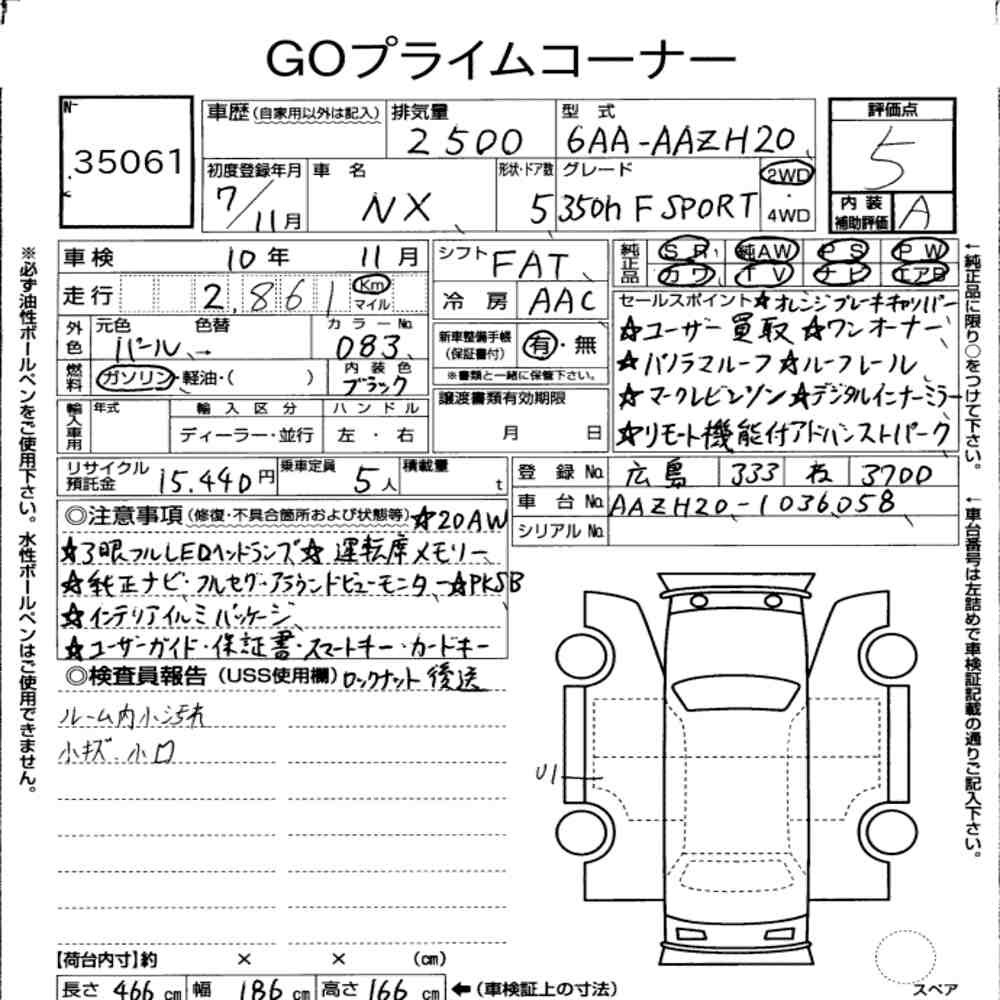 GOプライムコーナー
No
35061
車歴(自家用以外は記入)
排気量
2500
型式
6AA-AAZH20
評価点
5
初度登録年月
7/11月
車名
NX
形状・ドア数
5
グレード
350h F SPORT
2WD
・
4WD
内装
補助評価
A
車検
10年 11月
走行
2,861
Km
マイル
外色
元色 色替
パール →
カラーNo.
083
燃料
ガソリン・軽油・( )
内装色
ブラック
輸入車用
年式
輸入区分
ディーラー・並行
ハンドル
左・右
シフト
FAT
冷房
AAC
新車整備手帳
(保証書付)
有・無
※書類と一緒に保管下さい。
譲渡書類有効期限
月 日
純正品
SR 純AW PS PW
カワ TV ナビ エアB
セールスポイント ☆オレンジブレーキキャリパー
☆ユーザー買取☆ワンオーナー
☆パノラマルーフ☆ルーフレール
☆マークレビンソン☆デジタルインナーミラー
☆リモート機能付アドバンストパーク
リサイクル
預託金
15.440円
乗車定員
5人
積載量
t
登録No. 広島 333 ね 3700
車台No. AAZH20-1036058
シリアルNo.
◎注意事項(修復・不具合箇所および状態等)☆20AW
☆3眼フルLEDヘッドランプ☆運転席メモリー
☆純正ナビ・フルセグ・アラウンドビューモニター☆PKSB
☆インテリアイルミパッケージ
☆ユーザーガイド・保証書・スマートキー・カードキー
◎検査員報告(USS使用欄)ロックナット後送
ルーム内小汚れ
小キズ.小凹
U1
【荷台内寸】約 × × (cm)
長さ466cm 幅186cm 高さ166cm ←(車検証上の寸法)
スペア
※必ず油性ボールペンをご使用下さい。水性ボールペンはご使用できません。
←純正品に限り○をつけて下さい。
←車台番号は左詰めで車検証記載の通りご記入下さい。